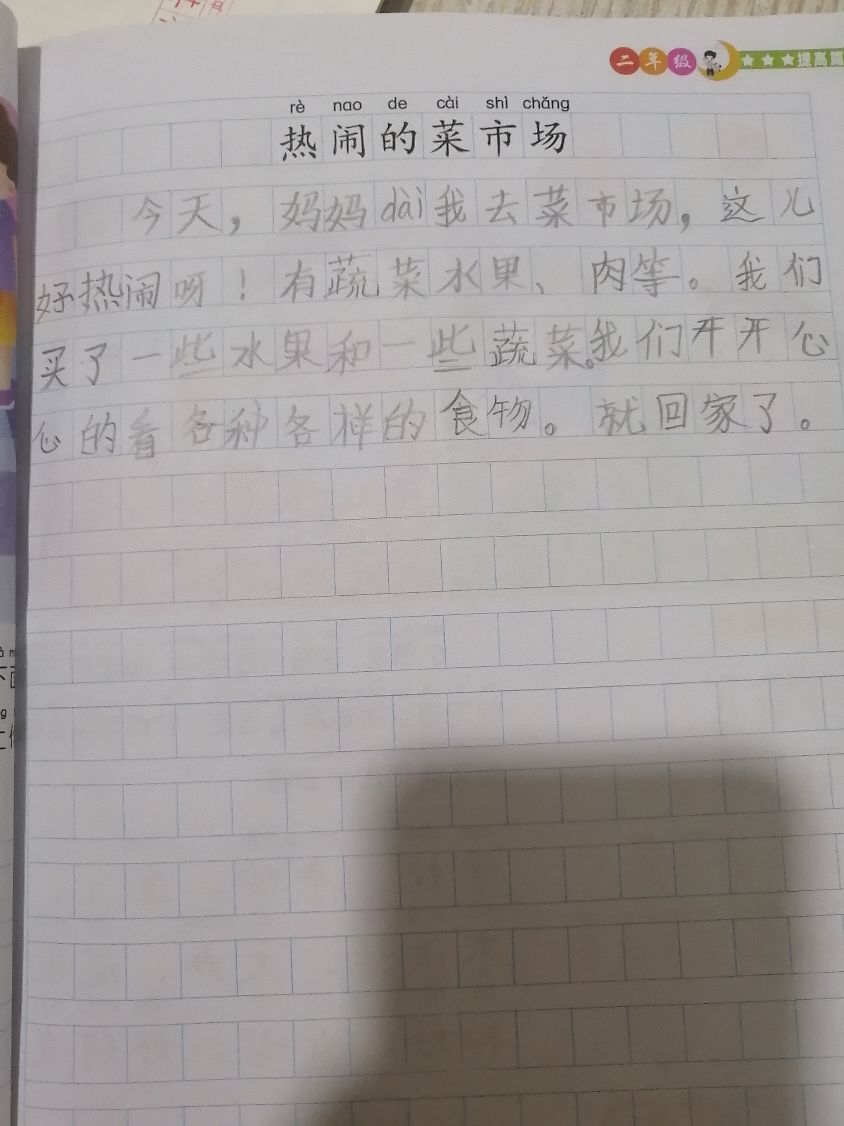 二年级 ★★★提高篇
rè nao de cài shì chǎng
热闹的菜市场
今天，妈妈dài我去菜市场，这儿
好热闹呀！有蔬菜水果、肉等。我们
买了一些水果和一些蔬菜。我们开开心
心的看各种各样的食物。就回家了。